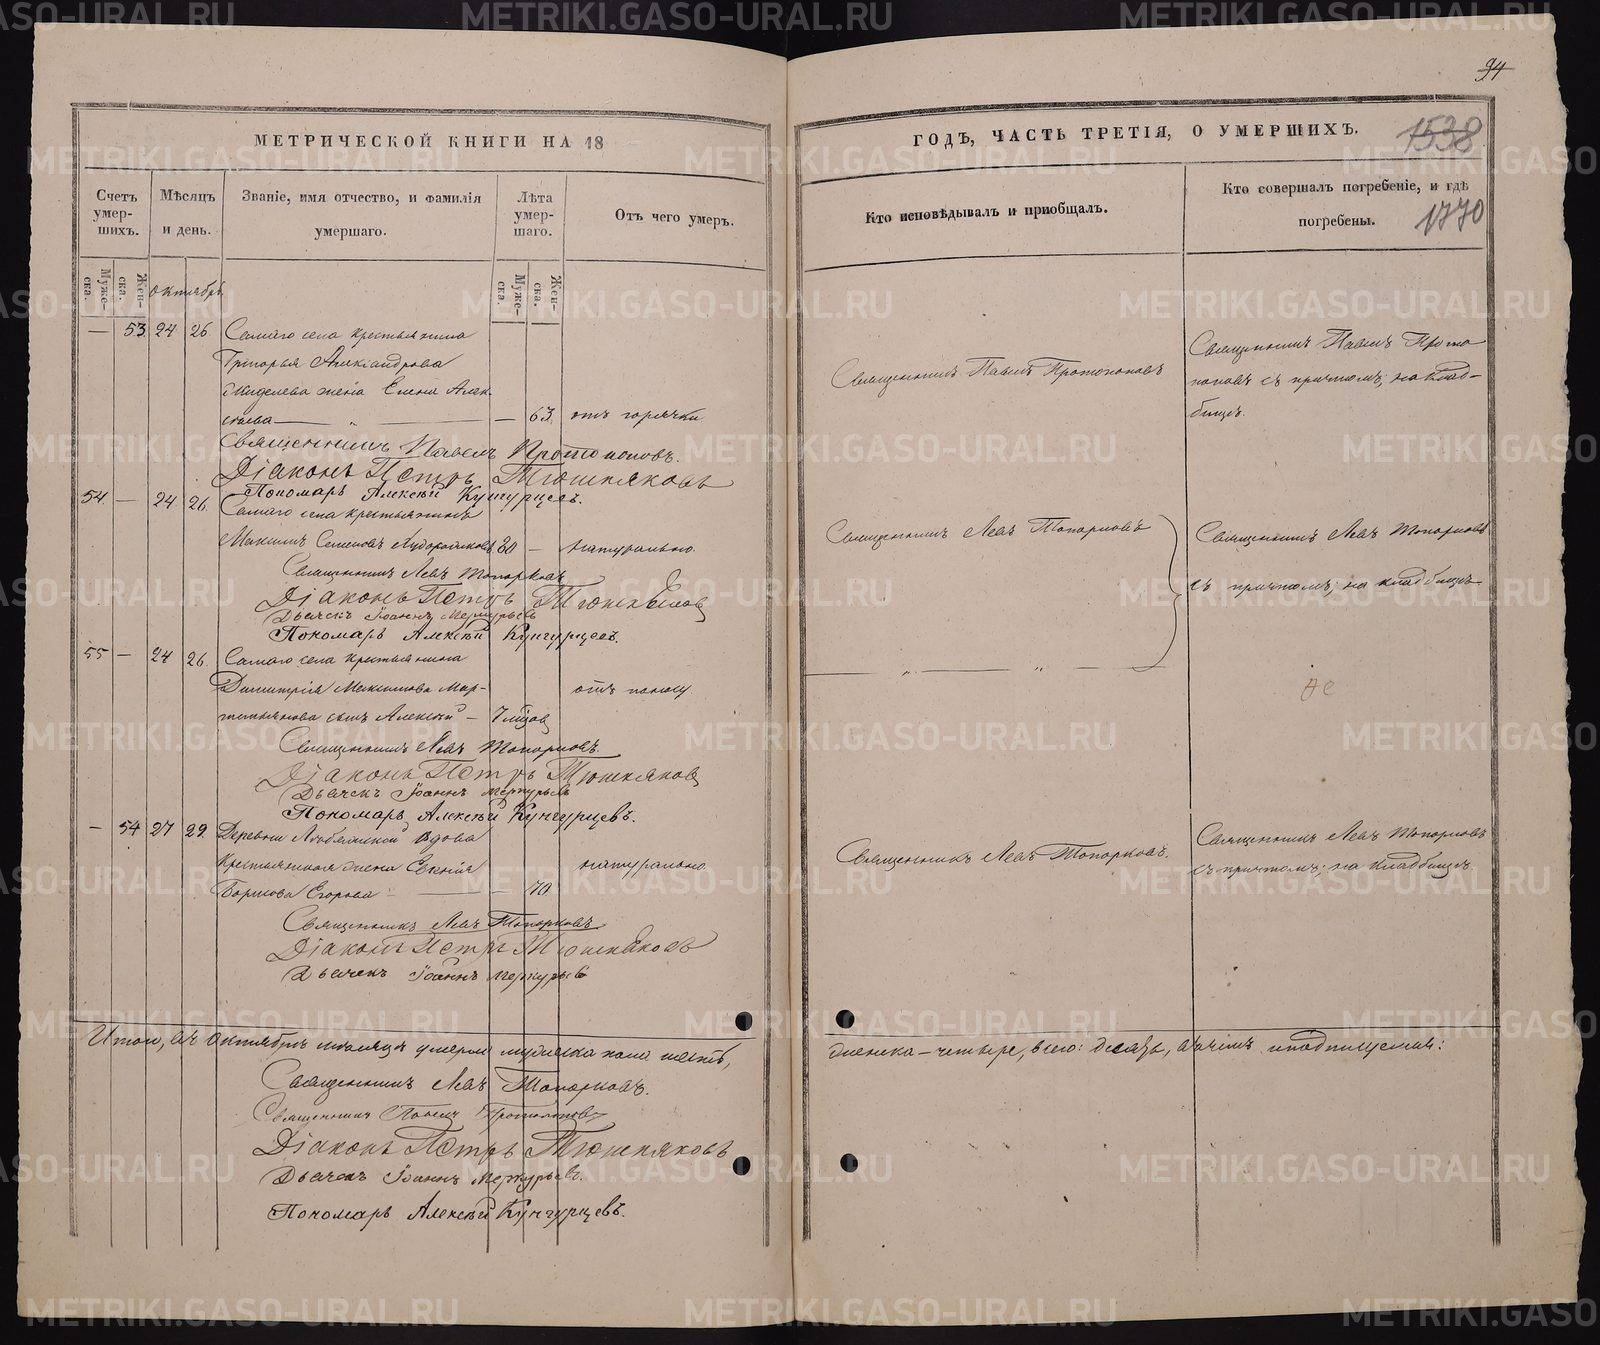 94
МЕТРИЧЕСКОЙ КНИГИ НА 18
ГОДЪ, ЧАСТЬ ТРЕТІЯ, О УМЕРШИХЪ.
1538
1770
Счетъ умер-шихъ.
Мѣсяцъ и день.
Званіе, имя отчество, и фамилія умершаго.
Лѣта умер-шаго.
Отъ чего умеръ.
Кто исповѣдывалъ и пріобщалъ.
Кто совершалъ погребеніе, и гдѣ погребены.
Муже-ска.
Жен-ска.
Октябрь
Муже-ска.
Жен-ска.
— 53 24 26 Самаго села крестьянина
Григорья Александрова
жена Елена Алек-
сѣева — „ — — 63. отъ горячки
Священникъ Павелъ Протопоповъ
Священникъ Павелъ Прото-
поповъ съ причтомъ; на клад-
бищѣ.
Священникъ Павелъ Протопоповъ.
Діаконъ Петръ Тюшняковъ
Пономарь Алексѣй Кунгурцевъ.
54 — 24 26. Самаго села крестьянинъ
Максимъ Семеновъ 80 — натурально.
Священникъ Левъ Топорковъ
Священникъ Левъ Топорковъ
съ причтомъ; на кладбищѣ
Священникъ Левъ Топорковъ
Діаконъ Петръ Тюшняковъ
Дьячекъ Іоаннъ Меркурьевъ
Пономарь Алексѣй Кунгурцевъ.
55 — 24 26. Самаго села крестьянина
Димитрія Максимова Мар-
сынъ Алексѣй — 7 отъ поносу
— „ — „ —
Священникъ Левъ Топорковъ.
Діаконъ Петръ Тюшняковъ
Дьячекъ Іоаннъ Меркурьевъ
Пономарь Алексѣй Кунгурцевъ.
— 54 27 29. Деревни вдова
Крестьянская жена натурально.
Борисова Егорова — — 70
Священникъ Левъ Топорковъ.
Священникъ Левъ Топорковъ
съ причтомъ; на кладбищѣ.
Священникъ Левъ Топорковъ
Діаконъ Петръ Тюшняковъ
Дьячекъ Іоаннъ Меркурьевъ
Итого, въ Октябрѣ мѣсяцѣ умерло мужеска пола шесть,
женска — четыре, всего: десять, въ чемъ и подписуемся:
Священникъ Левъ Топорковъ.
Священникъ Павелъ Протопоповъ
Діаконъ Петръ Тюшняковъ
Дьячекъ Іоаннъ Меркурьевъ.
Пономарь Алексѣй Кунгурцевъ.
METRIKI.GASO-URAL.RU